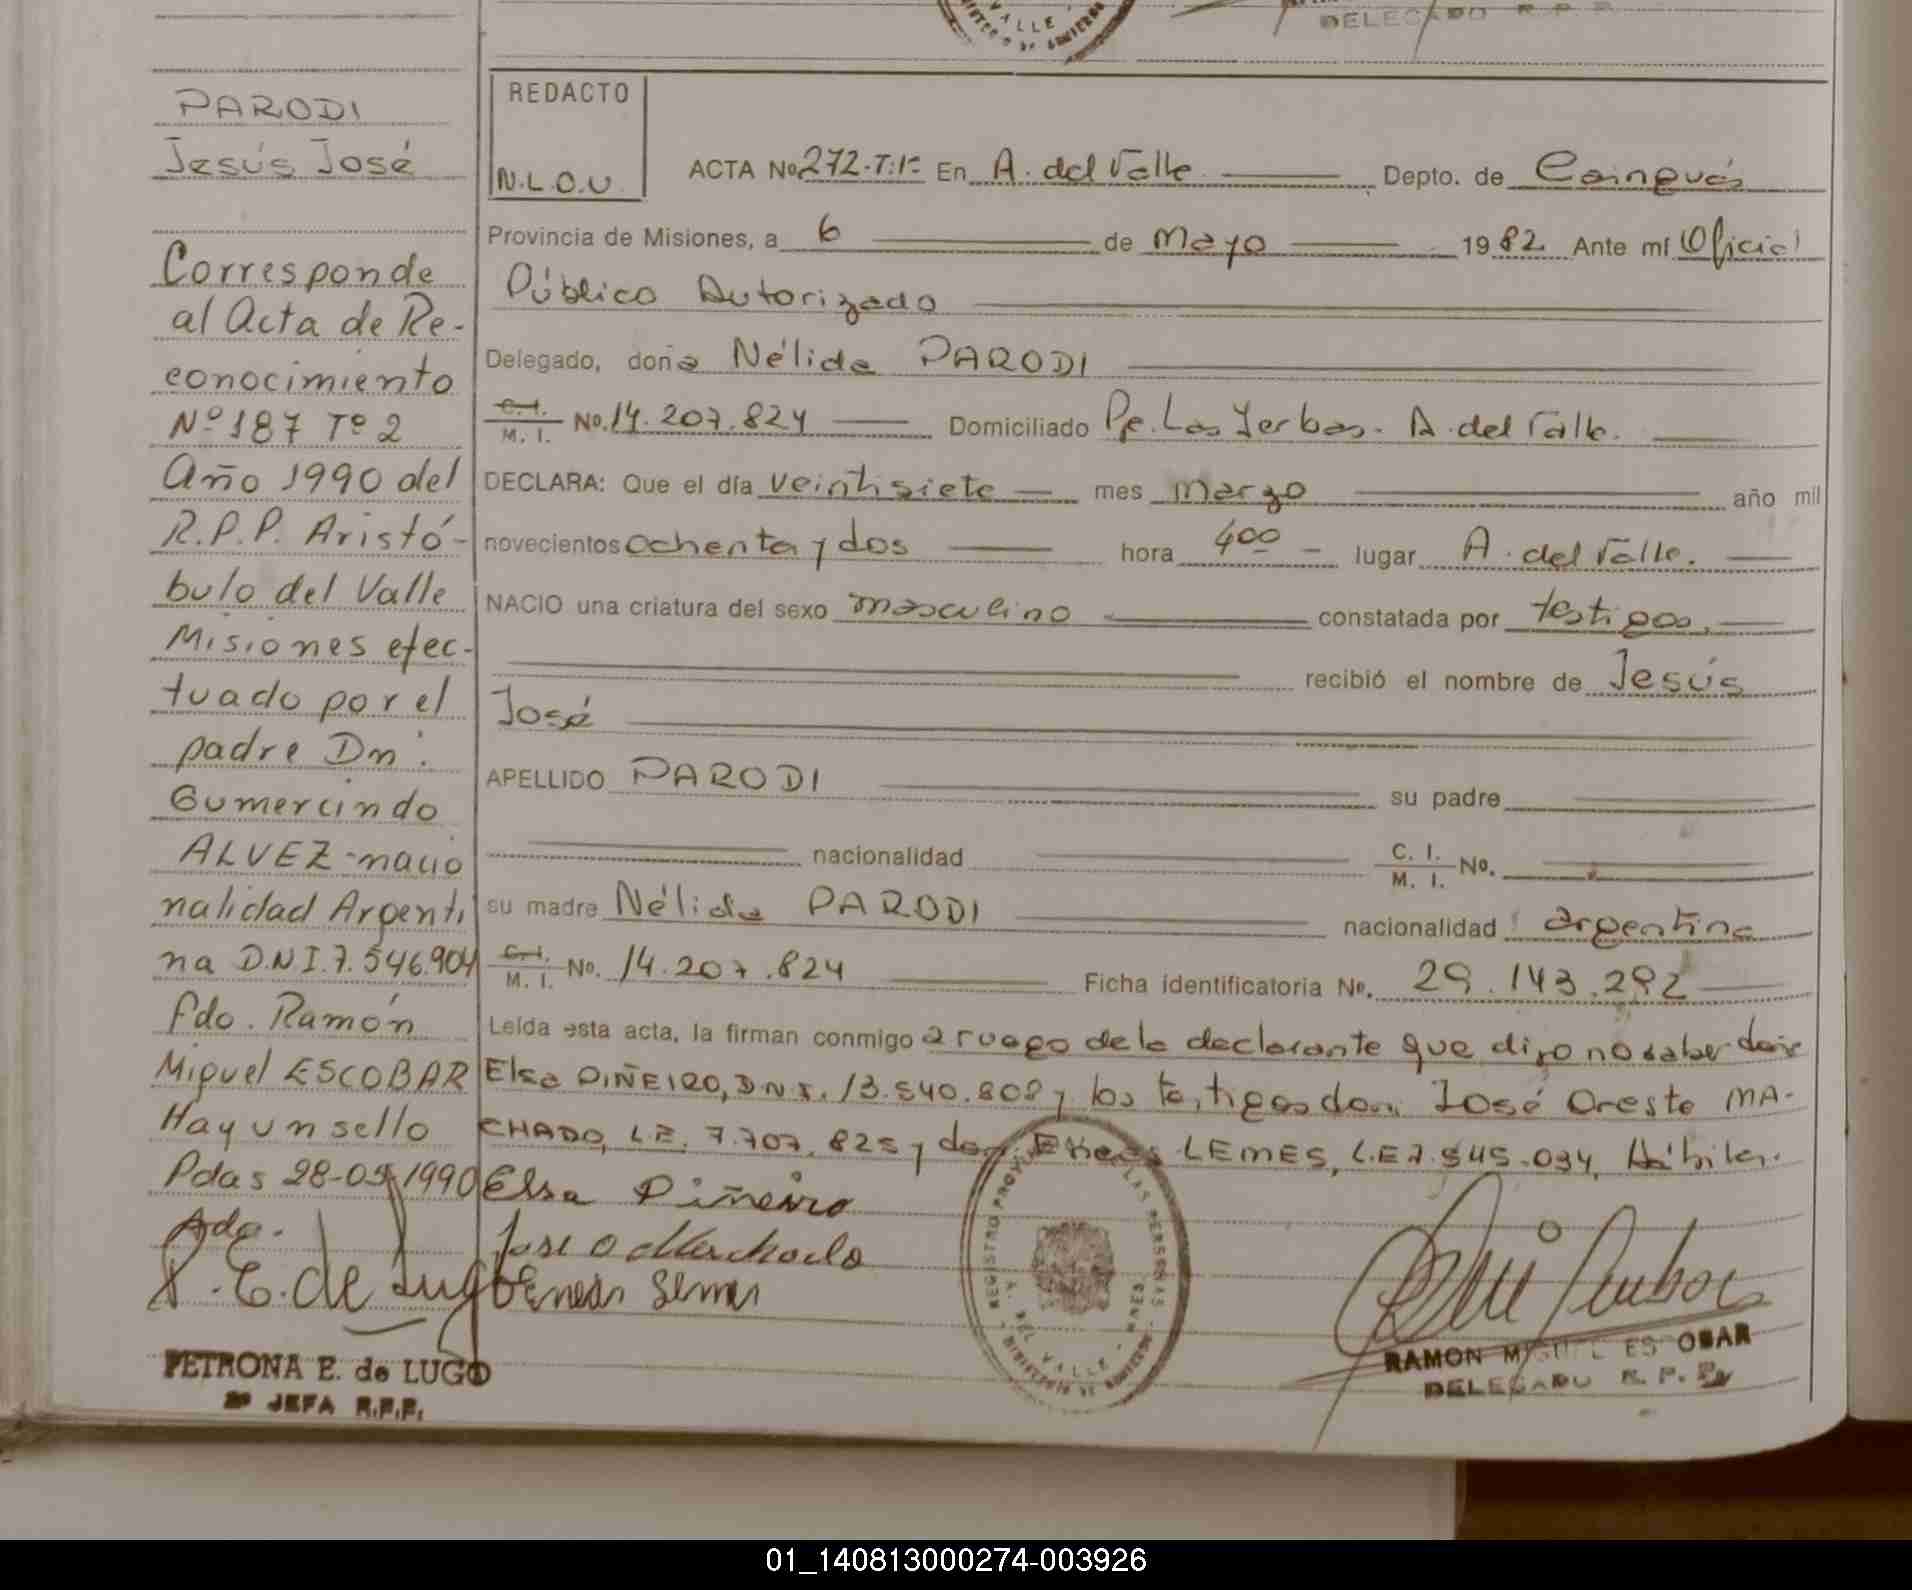 VALLE
DELEGADO R. P. P.
PARODI
Jesús José
Corresponde
al Acta de Re-
conocimiento
Nº 187 Tº 2
Año 1990 del
R.P.P. Aristó-
bulo del Valle
Misiones efec-
tuado por el
padre Dn.
Gumercindo
ALVEZ-nacio
nalidad Argenti
na D.N.I. 7.546.904
Fdo. Ramón
Miguel ESCOBAR
Hay un sello
Pdas 28-09-1990
P. E. de Lugo
PETRONA E. de LUGO
JEFA R.P.P.
REDACTO
N.L.O.U.
ACTA No 272-T:1º En A. del Valle Depto. de Cainguás
Provincia de Misiones, a 6 de Mayo 1982 Ante mí Oficial
Público Autorizado
Delegado, doña Nélida PARODI
C. I. / M. I. No. 14.207.824 Domiciliado Pje. Las Yerbas. A. del Valle.
DECLARA: Que el día veintisiete mes Marzo año mil
novecientos ochenta y dos hora 4 00 lugar A. del Valle.
NACIO una criatura del sexo masculino constatada por testigos,
recibió el nombre de Jesús
José
APELLIDO PARODI su padre
nacionalidad C. I. / M. I. No.
su madre Nélida PARODI nacionalidad argentina
C. I. / M. I. No. 14.207.824 Ficha identificatoria No. 29.143.292
Leída esta acta, la firman conmigo a ruego de la declarante que dijo no saber doña
Elsa PIÑEIRO, D.N.I. 13.540.808 y los testigos don José Oreste MA-
CHADO, L.E. 7.707.825 y don LEMES, L.E 7.545.034, Hábiles.
Elsa Piñeiro
Jose O Machado
REGISTRO PROV. DE LAS PERSONAS
A. DEL VALLE - MNES.
MINISTERIO DE GOBIERNO
RAMON MIGUEL ESCOBAR
DELEGADO R. P. P.
01_140813000274-003926